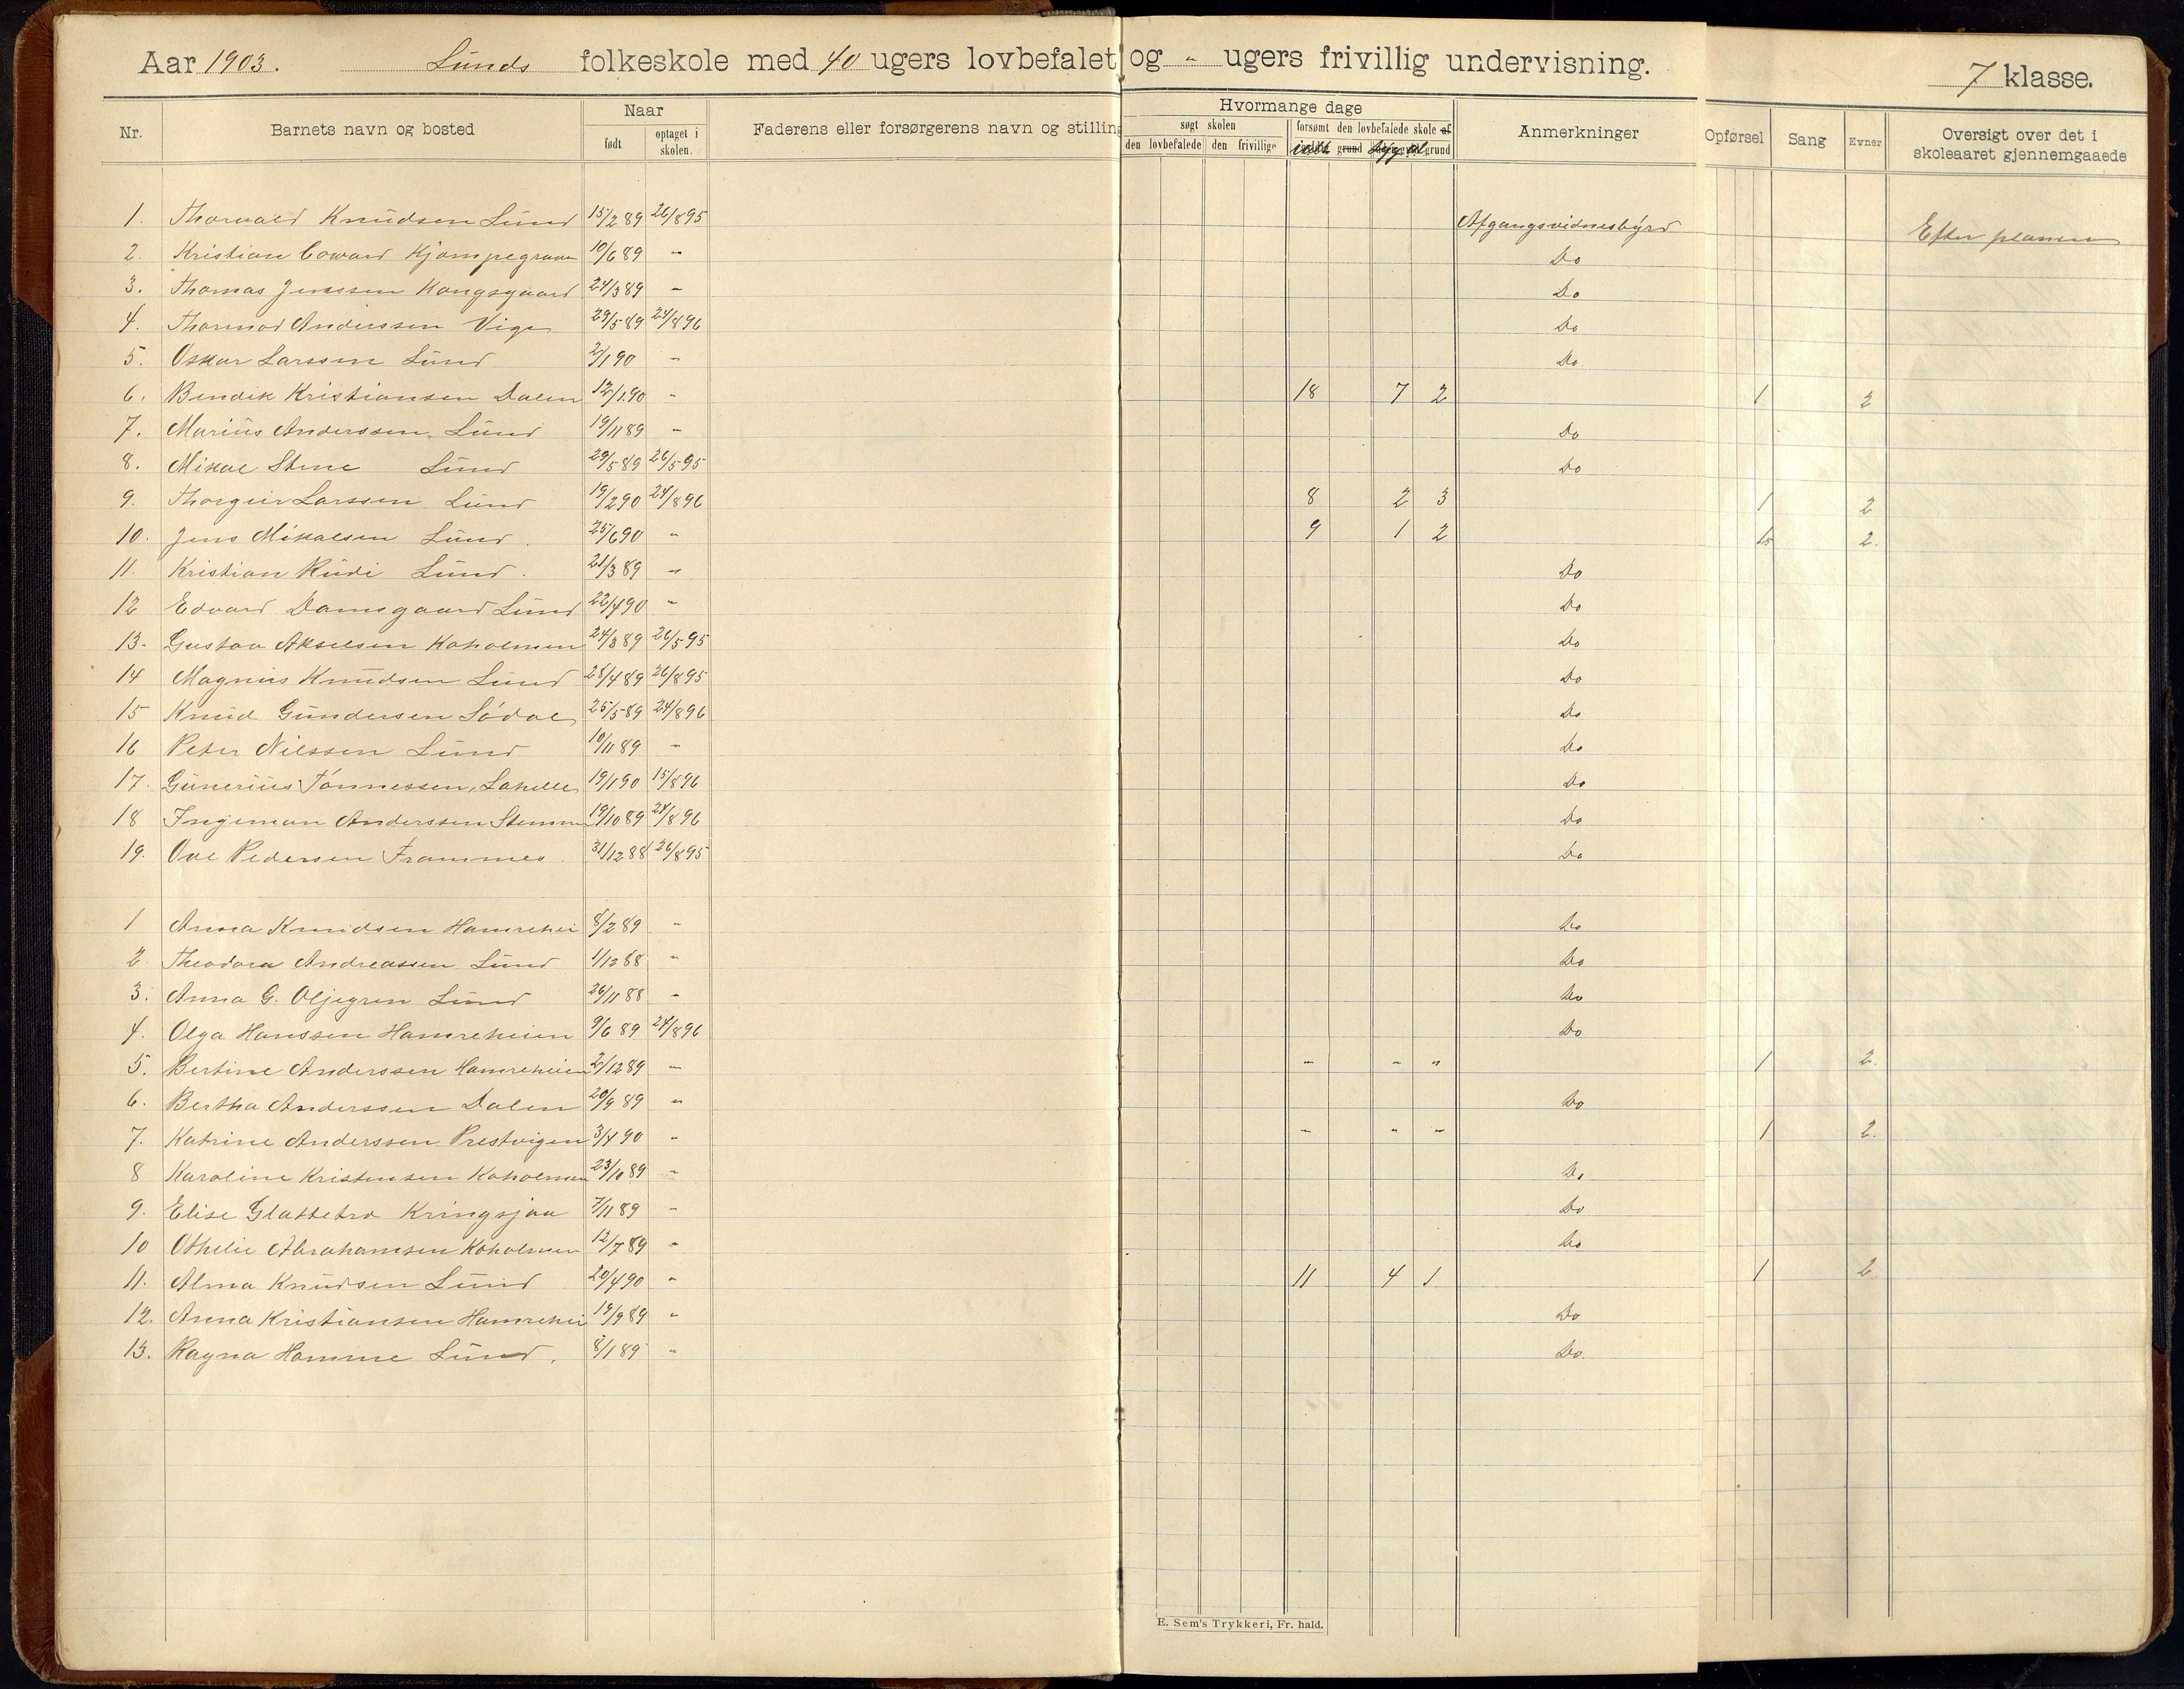 Aar 1903. Lunds folkeskole med 40 ugers lovbefalet og " ugers frivillig undervisning. 7 klasse.
Nr. Barnets navn og bosted Naar Faderens eller forsørgerens navn og stilling Hvormange dage Anmerkninger Opførsel Sang Evner Oversigt over det i skoleaaret gjennemgaaede
født optaget i skolen. søgt skolen forsømt den lovbefalede skole af
den lovbefalede den frivillige ialt grund syg grund
1. Thorvald Knudsen Lund 15/2 89 26/8 95 Afgangsvidnesbyrd Efter planen
2. Kristian Edward Kjempegraven 10/6 89 " Do
3. Thomas Jenssen Kongsgaard 24/3 89 " Do
4. Thormod Anderssen Vige 29/5 89 24/8 96 Do
5. Oskar Larssen Lund 2/1 90 " Do.
6. Bendik Kristiansen Dalen 12/1 90 " 18 7 2 1 2
7. Marius Anderssen Lund 19/11 89 " Do
8. Mikal Stene Lund 29/5 89 26/5 95 Do
9. Thorgeir Larssen Lund 19/2 90 24/8 96 8 2 3 1 2
10. Jens Mikalsen Lund. 25/6 90 " 9 1 2 1,5 2.
11. Kristian Rudi Lund. 21/3 89 " Do
12 Edvard Damsgaard Lund 22/4 90 " Do
13. Gustav Akselsen Koholmen 24/3 89 26/5 95 Do
14 Magnus Knudsen Lund 28/4 89 26/8 95 Do
15 Knud Gundersen Sødal 25/5 89 24/8 96 Do
16 Peter Nilssen Lund 10/11 89 " Do
17. Gunerius Tønnessen, Lahelle 19/1 90 15/8 96 Do
18 Ingeman Anderssen Stemmen 19/10 89 24/8 96 Do
19. Ove Pedersen Frammes. 31/12 88 26/8 95 Do
1 Anna Knudsen Hamrehei 8/2 89 " Do
2 Theodora Andreassen Lund 1/12 88 " Do
3. Anna G. Oljegren Lund 26/11 88 " Do
4. Olga Hanssen Hamreheien 9/6 89 24/8 96 Do
5. Bertine Anderssen Hamreheien 2/12 89 " " " " 1 2.
6. Bertha Anderssen Dalen 20/9 89 " Do
7. Katrine Anderssen Prestvigen 3/4 90 " " " " 1 2.
8 Karoline Kristensen Koholmen 23/10 89 " Do
9. Elise Glattetre Kringsjaa 7/11 89 " Do
10 Othelie Abrahamsen Koholmen 12/7 89 " Do
11. Alma Knudsen Lund 20/4 90 " 11 4 1 1 2
12. Anna Kristiansen Hamrehei 19/9 89 " Do
13. Ragna Hamme Lund. 8/1 89 " Do.
E. Sem's Trykkeri, Fr. hald.